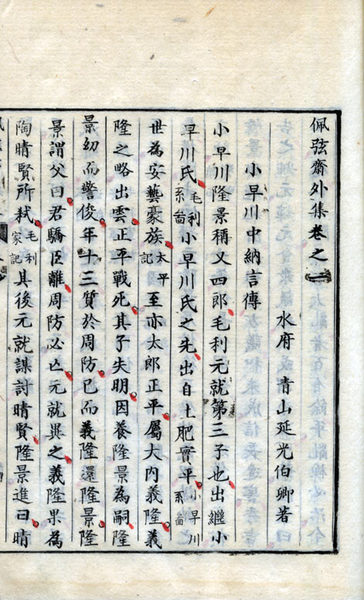 佩弦齋外集卷之一
水府 青山延光伯卿著
小早川中納言傳
小早川隆景稱又四郎毛利元就第三子也出繼小
早川氏毛利系啚小早川氏之先出自土肥實平小早川系啚
世為安藝豪族太平記至亦太郎正平屬大內義隆義
隆之略出雲正平戰死其子失明因養隆景為嗣隆
景幼而警俊年十三質於周防已而義隆還隆景隆
景謂父曰君驕臣離周防必亡元就異之義隆果為
陶晴賢所弒毛利家記其後元就謀討晴賢隆景進曰晴